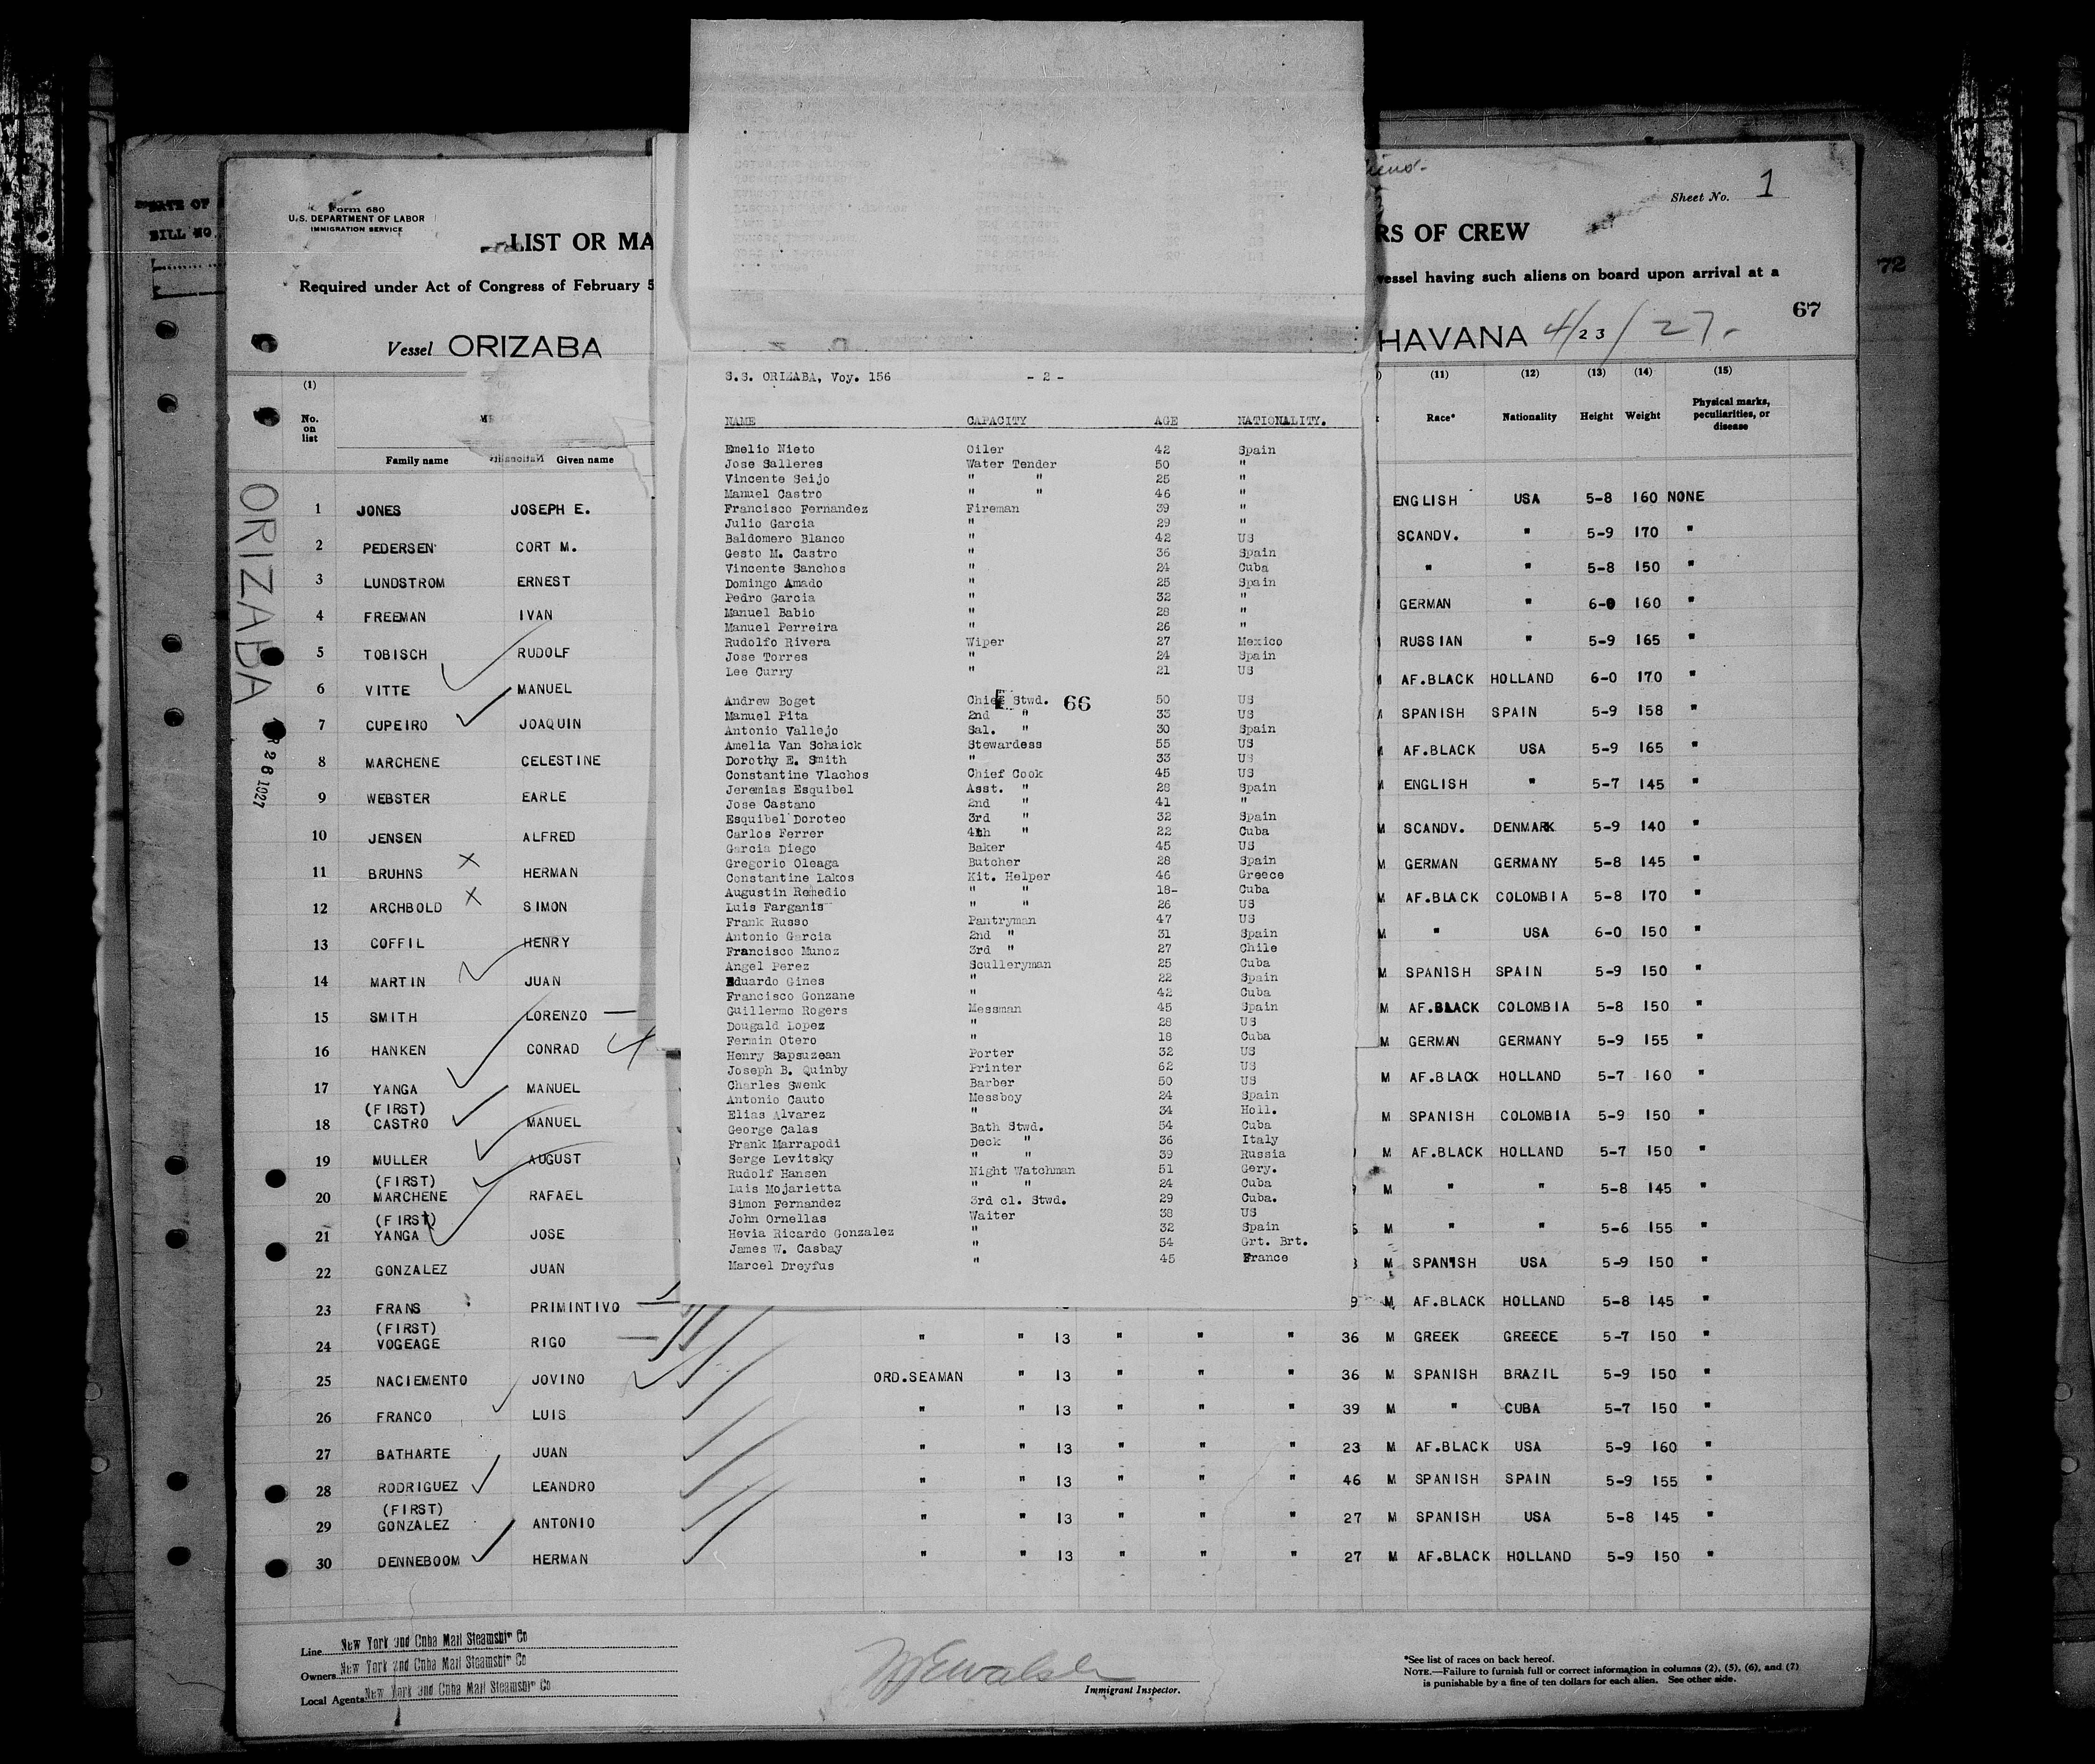 Form 680
U.S. DEPARTMENT OF LABOR
IMMIGRATION SERVICE
Sheet No. 1
LIST OR MA
RS OF CREW
Required under Act of Congress of February 5
vessel having such aliens on board upon arrival at a
67
72
Vessel ORIZABA
HAVANA 4/23/27.
DATE OF
BILL NO.
ORIZABA
(1)
No. on list
Family name
Given name
(11) (12) (13) (14) (15)
Race* Nationality Height Weight Physical marks, peculiarities, or disease
S.S. ORIZABA, Voy. 156 - 2 -
NAME CAPACITY AGE NATIONALITY.
Emelio Nieto Oiler 42 Spain
Jose Salleres Water Tender 50 "
Vincente Seijo " " 25 "
Manuel Castro " " 46 "
Francisco Fernandez Fireman 39 "
Julio Garcia " 29 "
Baldomero Blanco " 42 US
Gesto M. Castro " 36 Spain
Vincente Sanchos " 24 Cuba
Domingo Amado " 25 Spain
Pedro Garcia " 32 "
Manuel Babio " 28 "
Manuel Perreira " 26 "
Rudolfo Rivera Wiper 27 Mexico
Jose Torres " 24 Spain
Lee Curry " 21 US
Andrew Boget Chief Stwd. 66 50 US
Manuel Pita 2nd " 33 US
Antonio Vallejo Sal. " 30 Spain
Amelia Van Schaick Stewardess 55 US
Dorothy E. Smith " 33 US
Constantine Vlachos Chief Cook 45 US
Jeremias Esquibel Asst. " 28 Spain
Jose Castano 2nd " 41 "
Esquibel Doroteo 3rd " 32 Spain
Carlos Ferrer 4th " 22 Cuba
Garcia Diego Baker 45 US
Gregorio Oleaga Butcher 28 Spain
Constantine Lakos Kit. Helper 46 Greece
Augustin Remedio " " 18- Cuba
Luis Farganis " " 26 US
Frank Russo Pantryman 47 US
Antonio Garcia 2nd " 31 Spain
Francisco Munoz 3rd " 27 Chile
Angel Perez Sculleryman 25 Cuba
Eduardo Gines " 22 Spain
Francisco Gonzane " 42 Cuba
Guillermo Rogers Messman 45 Spain
Dougald Lopez " 28 US
Fermin Otero " 18 Cuba
Henry Sapsuzean Porter 32 US
Joseph B. Quinby Printer 62 US
Charles Swenk Barber 50 US
Antonio Cauto Messboy 24 Spain
Elias Alvarez " 34 Holl.
George Calas Bath Stwd. 54 Cuba
Frank Marrapodi Deck " 36 Italy
Serge Levitsky " " 39 Russia
Rudolf Hansen Night Watchman 51 Gery.
Luis Mojarietta " " 24 Cuba
Simon Fernandez 3rd cl. Stwd. 29 Cuba.
John Ornellas Waiter 38 US
Hevia Ricardo Gonzalez " 32 Spain
James W. Casbay " 54 Grt. Brt.
Marcel Dreyfus " 45 France
1 JONES JOSEPH E. ENGLISH USA 5-8 160 NONE
2 PEDERSEN CORT M. SCANDV. " 5-9 170 "
3 LUNDSTROM ERNEST " " 5-8 150 "
4 FREEMAN IVAN GERMAN " 6-0 160 "
5 TOBISCH RUDOLF RUSSIAN " 5-9 165 "
6 VITTE MANUEL AF.BLACK HOLLAND 6-0 170 "
7 CUPEIRO JOAQUIN SPANISH SPAIN 5-9 158 "
8 MARCHENE CELESTINE AF.BLACK USA 5-9 165 "
9 WEBSTER EARLE M ENGLISH " 5-7 145 "
10 JENSEN ALFRED M SCANDV. DENMARK 5-9 140 "
11 BRUHNS HERMAN M GERMAN GERMANY 5-8 145 "
12 ARCHBOLD SIMON M AF.BLACK COLOMBIA 5-8 170 "
13 COFFIL HENRY M " USA 6-0 150 "
14 MARTIN JUAN M SPANISH SPAIN 5-9 150 "
15 SMITH LORENZO M AF.BLACK COLOMBIA 5-8 150 "
16 HANKEN CONRAD M GERMAN GERMANY 5-9 155 "
17 YANGA MANUEL M AF.BLACK HOLLAND 5-7 160 "
(FIRST)
18 CASTRO MANUEL M SPANISH COLOMBIA 5-9 150 "
19 MULLER AUGUST M AF.BLACK HOLLAND 5-7 150 "
(FIRST)
20 MARCHENE RAFAEL M " " 5-8 145 "
(FIRST)
21 YANGA JOSE M " " 5-6 155 "
22 GONZALEZ JUAN M SPANISH USA 5-9 150 "
23 FRANS PRIMINTIVO 9 M AF.BLACK HOLLAND 5-8 145 "
(FIRST)
24 VOGEAGE RIGO " " 13 " " " 36 M GREEK GREECE 5-7 150 "
25 NACIEMENTO JOVINO ORD.SEAMAN " 13 " " " 36 M SPANISH BRAZIL 5-9 150 "
26 FRANCO LUIS " " 13 " " " 39 M " CUBA 5-7 150 "
27 BATHARTE JUAN " " 13 " " " 23 M AF.BLACK USA 5-9 160 "
28 RODRIGUEZ LEANDRO " " 13 " " " 46 M SPANISH SPAIN 5-9 155 "
(FIRST)
29 GONZALEZ ANTONIO " " 13 " " " 27 M SPANISH USA 5-8 145 "
30 DENNEBOOM HERMAN " " 13 " " " 27 M AF.BLACK HOLLAND 5-9 150 "
Line New York and Cuba Mail Steamship Co
Owners New York and Cuba Mail Steamship Co
Local Agents New York and Cuba Mail Steamship Co
Immigrant Inspector.
*See list of races on back hereof.
NOTE.—Failure to furnish full or correct information in columns (2), (5), (6), and (7)
is punishable by a fine of ten dollars for each alien. See other side.